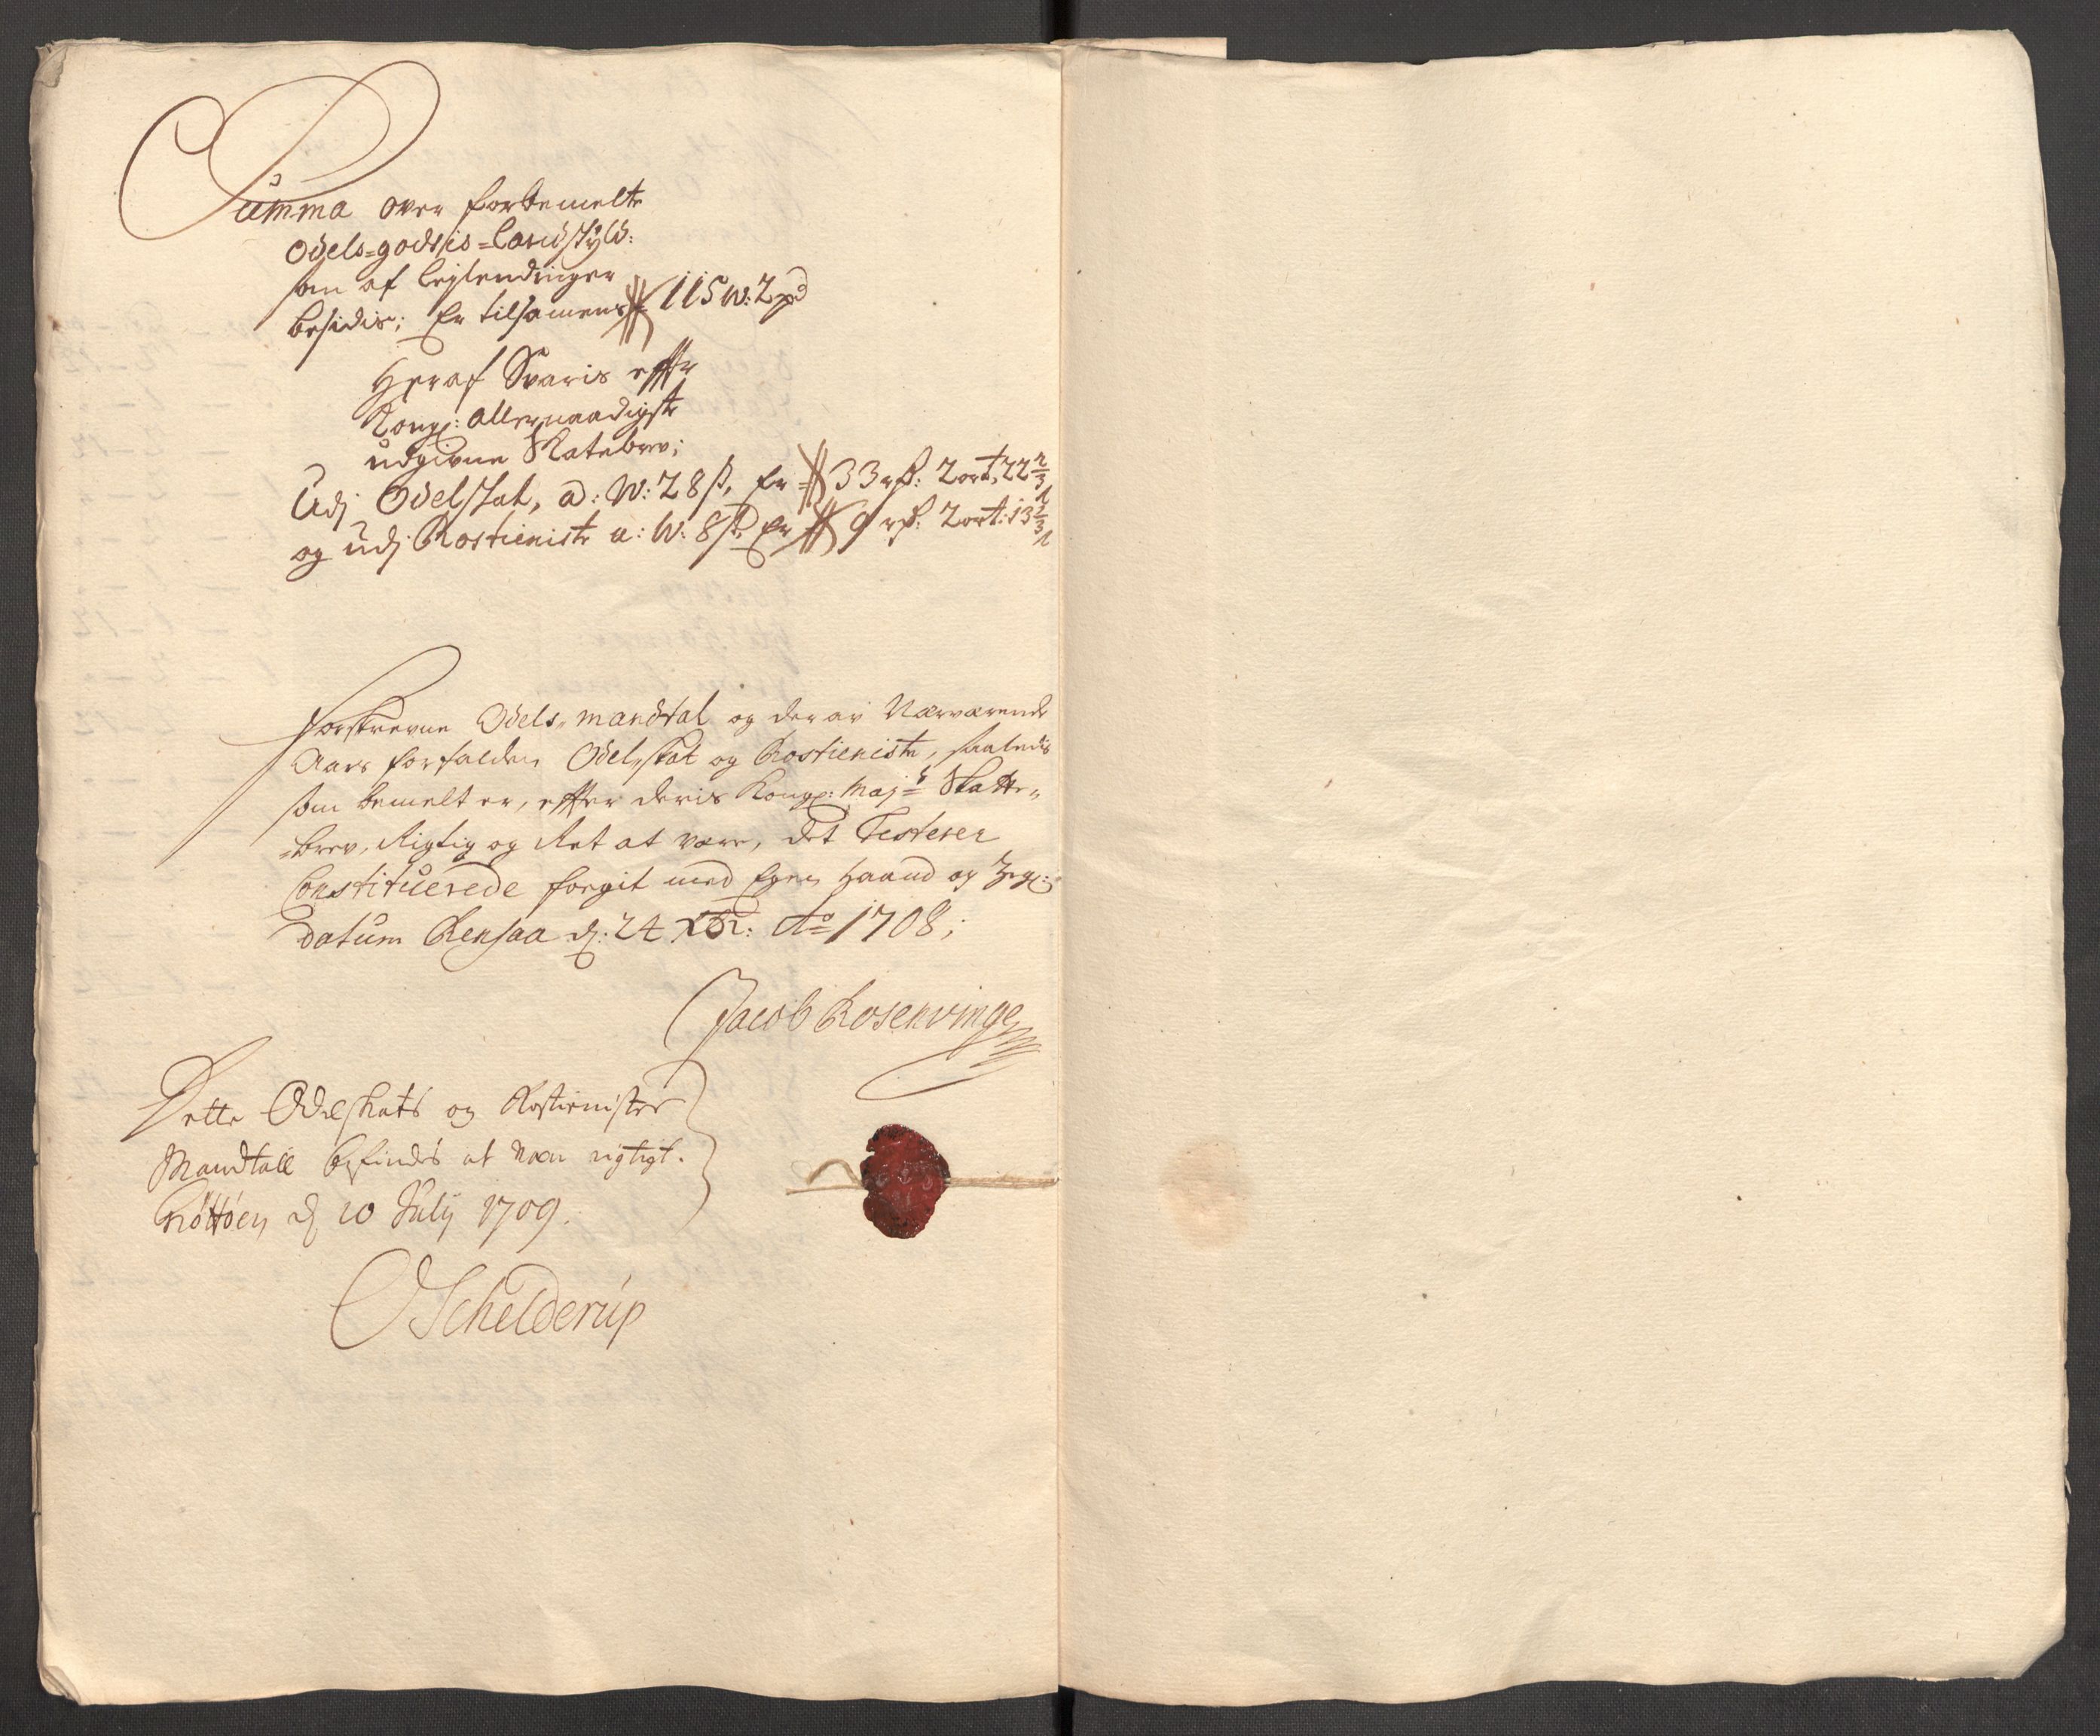 Summa over forbemelte
Odels=godsis=landskÿld:
som af leÿlendinger
besidis; Er tilsamens 115 w: 2 pd
Heraf Svaris effter
Kongl: allernaadigste
udgivne Skatebrev;
Udj Odelskat, a: W: 28 s, Er 33 rd: 2 ort, 22 2/3 s
og udj Rostieniste a: W: 8 s, Er 9 rd: 2 ort: 13 1/3 s
Forskrevne Odels=mandtal og der av Nærværende
Aars forfalden Odelskat og Rostieniste, saaledis
som bemelt er, effter deris Kongl: Maj:ts Skatte=
=brev, Rigtig og Ret at være, det Testerer
Constituerede foegit med Egen Haand og Zegl:
Datum Rensaa d: 24 Xbr: Ao 1708;
Jacob Rosenvinge
Dette Odelskats og Rostienistes
Mandtall befindes at være rigtigt.
d 10 Julij 1709.
O Schelderup